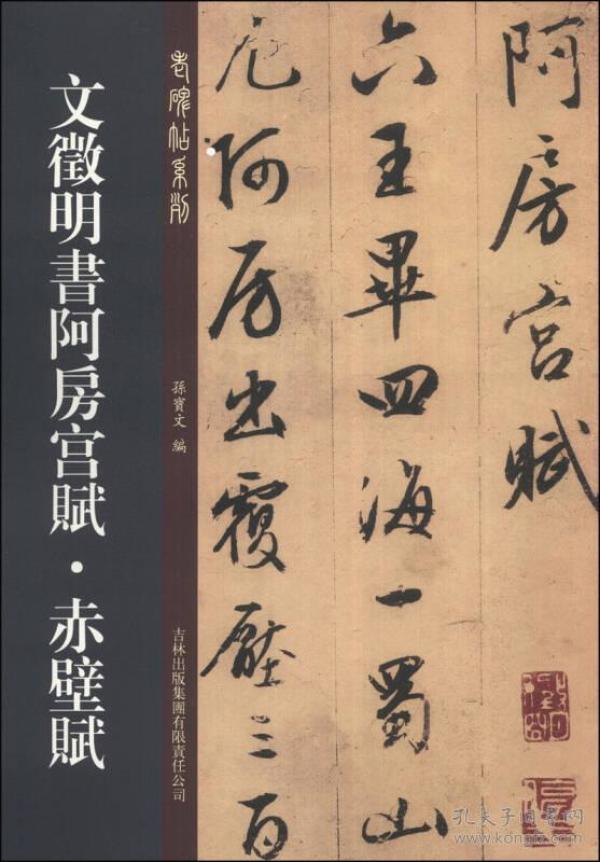 文徵明書阿房宫賦·赤壁賦
老碑帖系列
孫寳文 編
吉林出版集團有限責任公司
阿房宫賦
六王畢四海一蜀山
兀阿房出覆壓三百
孔夫子旧书网